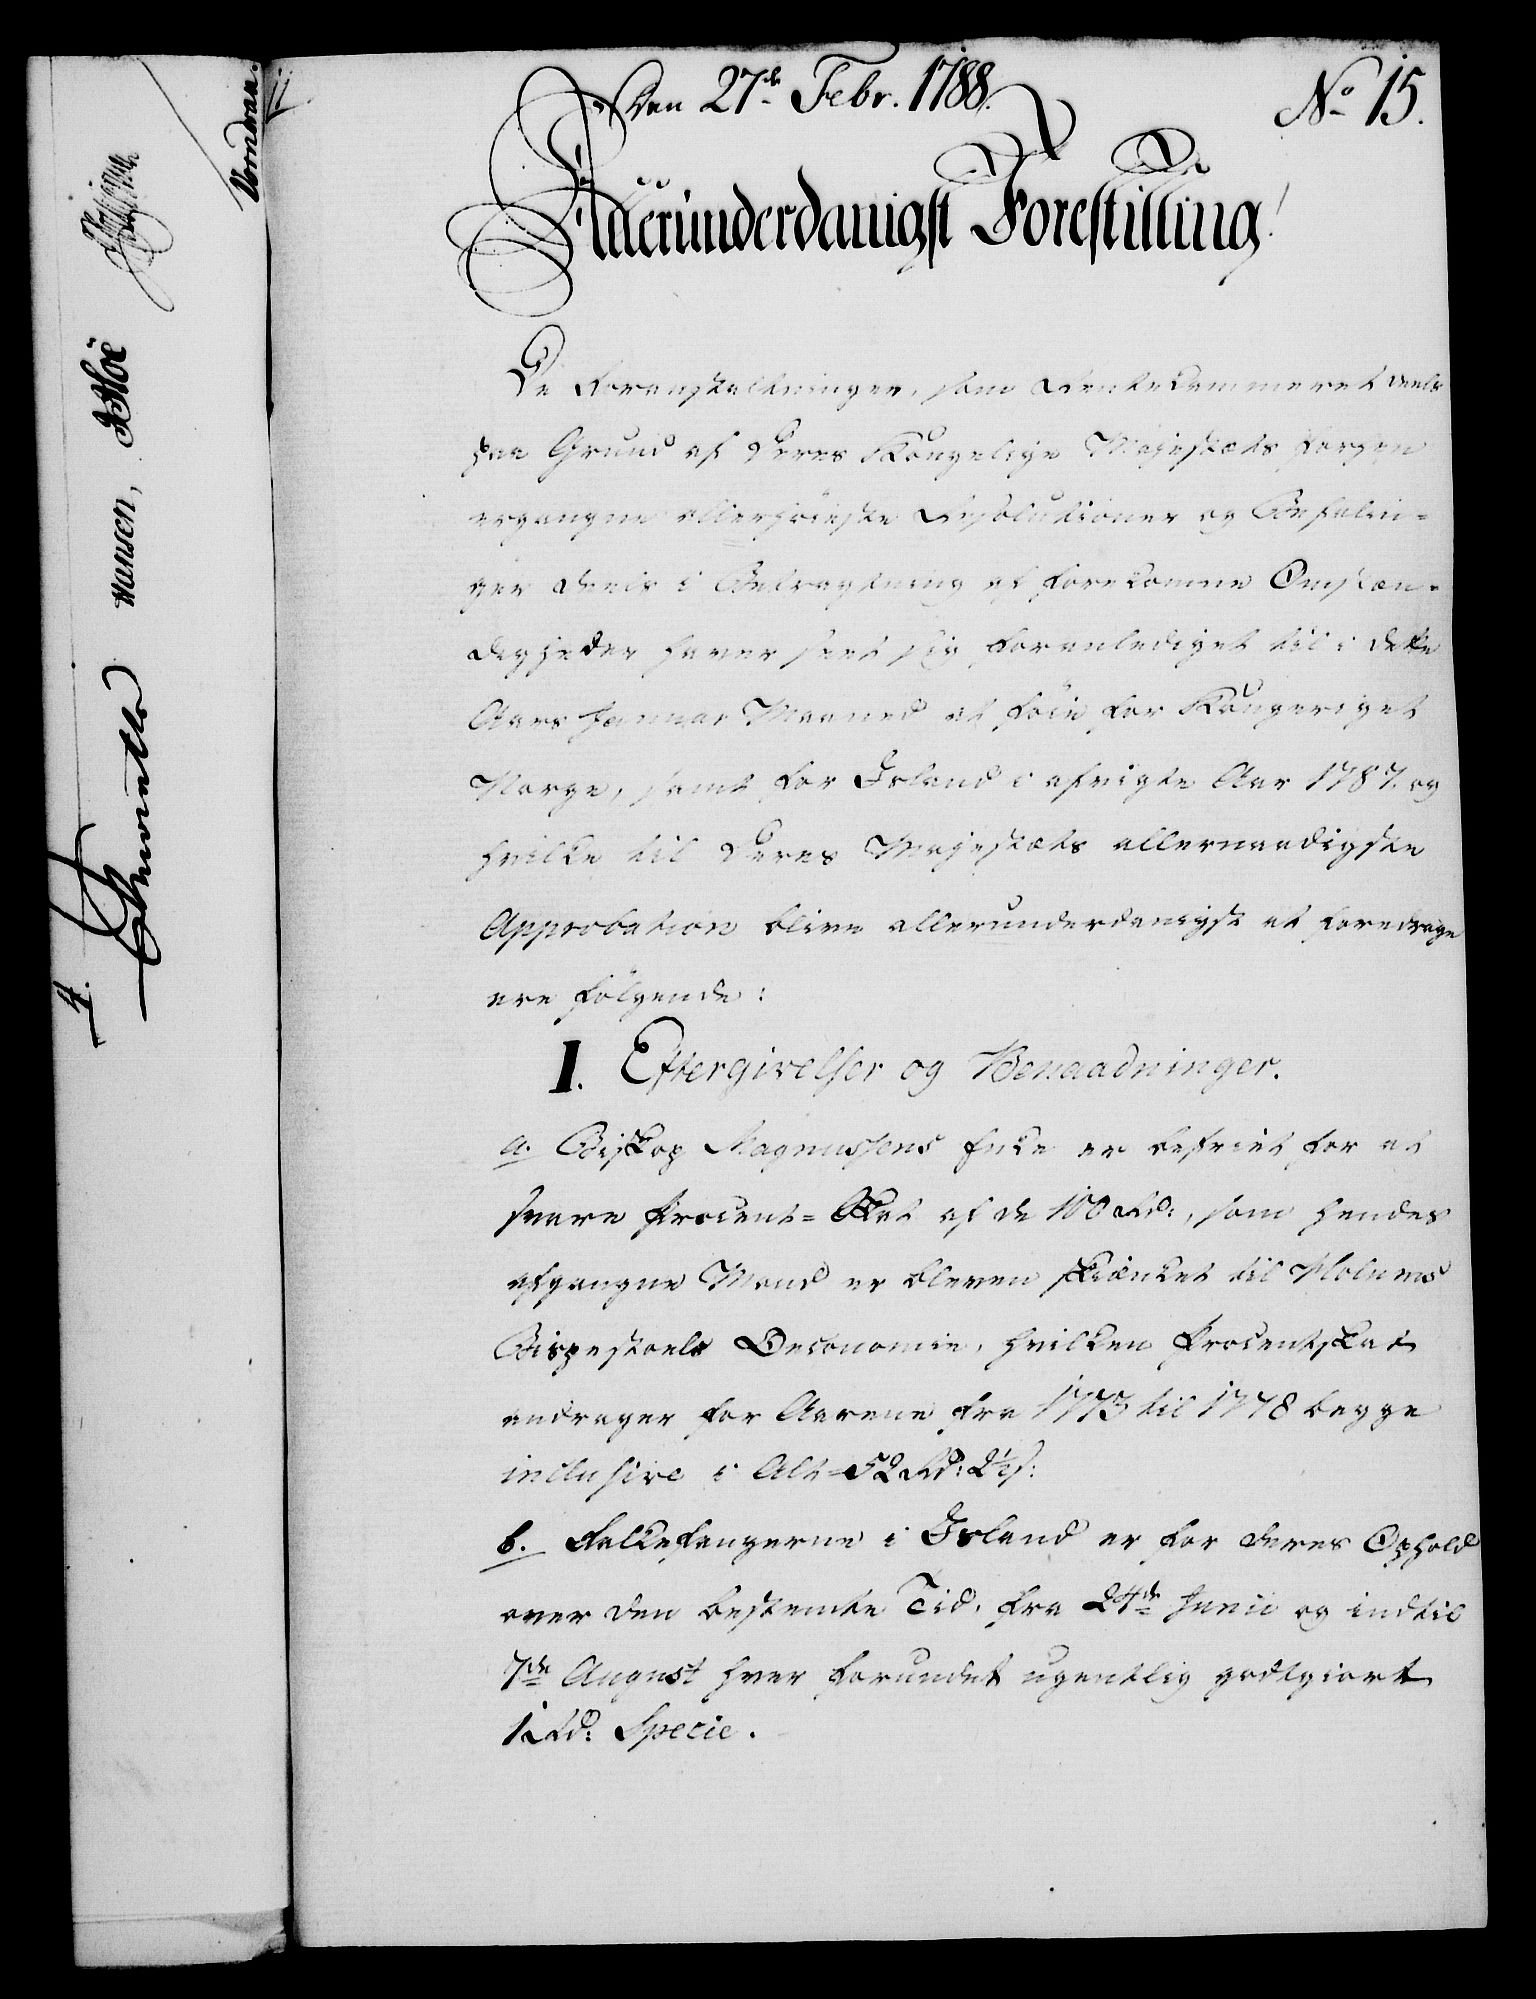 Den 27de Febr. 1788.
No 15.
Allerunderdanigst Forestilling!
De Foranstaltninger, som Rentekammeret deels
paa Grund af Deres Kongelige Majestæts forhen
ergangne allerhøieste Resolutioner og Befalin=
ger deels i Betragtning af forekomne Omstæn=
digheder haver seet sig foranlediget til i dette
Aars Januar Maaned at føie for Kongeriget
Norge, samt for Island i afvigte Aar 1787. og
hvilke til Deres Majestæts allernaadigste
Approbation blive allerunderdanigst at foredrage
ere følgende:
1. Eftergivelser og Benaadninger.
a. Biskop Magnussens Enke er befriet for at
svare Procent=Skat af de 100 Rd:, som hendes
afgangne Mand er bleven skiænket til Holums
Bispestoels Oeconomie, hvilken Procentskat
andrager for Aarene fra 1773 til 1778 begge
inclusive i Alt 52 Rd: 2½ s:
b. Falkefangerne i Island er for deres Ophold
over den bestemte Tid, fra 24de Junii og indtil
7de August hver forundet ugentlig godtgiort
1 Rd: Specie.
Vomdran.
Hansen,
4.